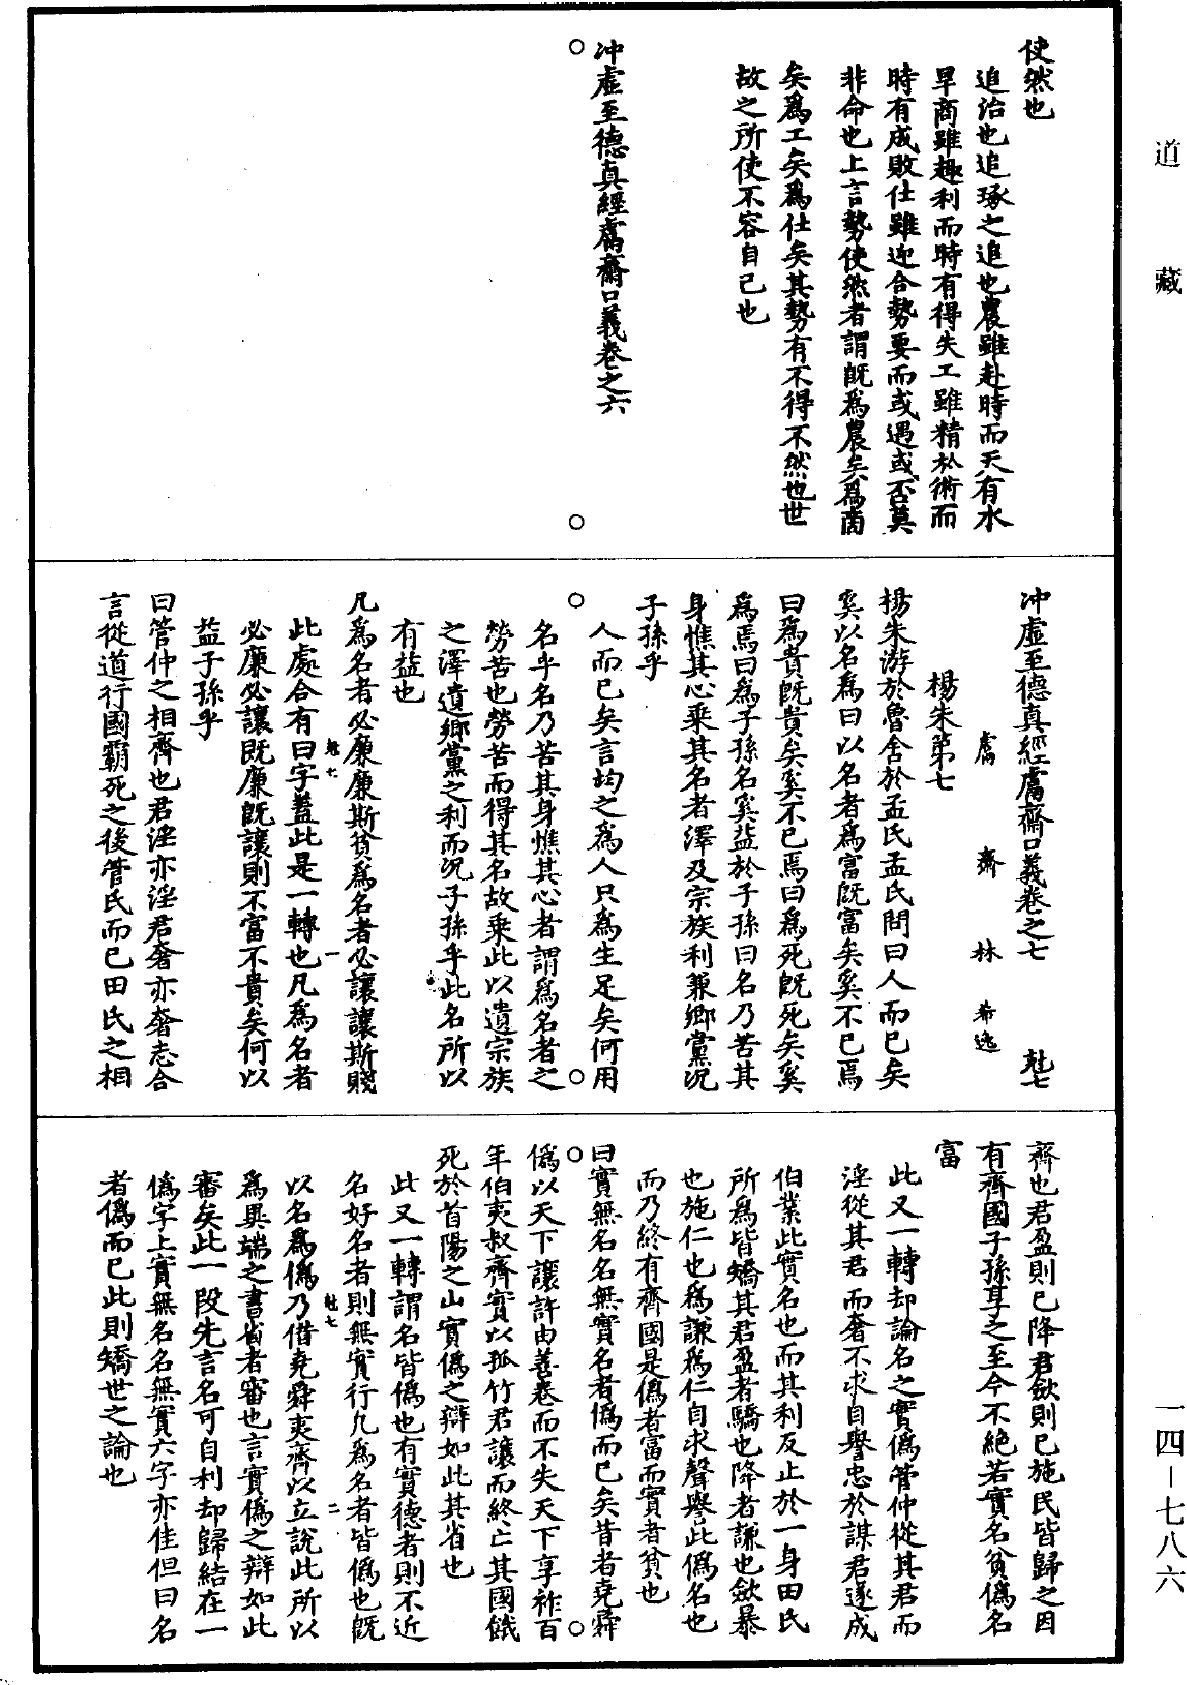 道藏
使然也
追治也追琢之追也農雖赴時而天有水
旱商雖趣利而時有得失工雖精於術而
時有成敗仕雖迎合勢要而或遇或否莫
非命也上言勢使然者謂既爲農矣爲商
矣爲工矣爲仕矣其勢有不得不然也世
故之所使不容自己也
冲虛至德真經鬳齋口義卷之六
冲虛至德真經鬳齋口義卷之七 尅七
鬳齋林希逸
楊朱第七
楊朱游於魯舍於孟氏孟氏問曰人而已矣
奚以名爲曰以名者爲富既富矣奚不已焉
曰爲貴既貴矣奚不已焉曰爲死既死矣奚
爲焉曰爲子孫名奚益於子孫曰名乃苦其
身憔其心乘其名者澤及宗族利兼鄉黨況
子孫乎
人而已矣言均之爲人只爲生足矣何用
名乎名乃苦其身憔其心者謂爲名者之
勞苦也勞苦而得其名故乘此以遺宗族
之澤遺鄉黨之利而況子孫乎此名所以
有益也
凡爲名者必廉廉斯貧爲名者必讓讓斯賤
尅七 一
此處合有曰字蓋此是一轉也凡爲名者
必廉必讓既廉既讓則不富不貴矣何以
益子孫乎
曰管仲之相齊也君淫亦淫君奢亦奢志合
言從道行國霸死之後管氏而已田氏之相
齊也君盈則已降君歛則已施民皆歸之因
有齊國子孫享之至今不絕若實名貧僞名
富
此又一轉却論名之實僞管仲從其君而
淫從其君而奢不求自譽忠於謀君遂成
伯業此實名也而其利反止於一身田氏
所爲皆矯其君盈者驕也降者謙也歛暴
也施仁也爲謙爲仁自求聲譽此僞名也
而乃終有齊國是僞者富而實者貧也
曰實無名名無實名者僞而已矣昔者堯舜
僞以天下讓許由善卷而不失天下享祚百
年伯夷叔齊實以孤竹君讓而終亡其國餓
死於首陽之山實僞之辯如此其省也
此又一轉謂名皆僞也有實德者則不近
名好名者則無實行凡爲名者皆僞也既
尅七 二
以名爲僞乃借堯舜夷齊以立說此所以
爲異端之書省者審也言實僞之辯如此
審矣此一段先言名可自利却歸結在一
僞字上實無名名無實六字亦佳但曰名
者僞而已此則矯世之論也
一四—七八六